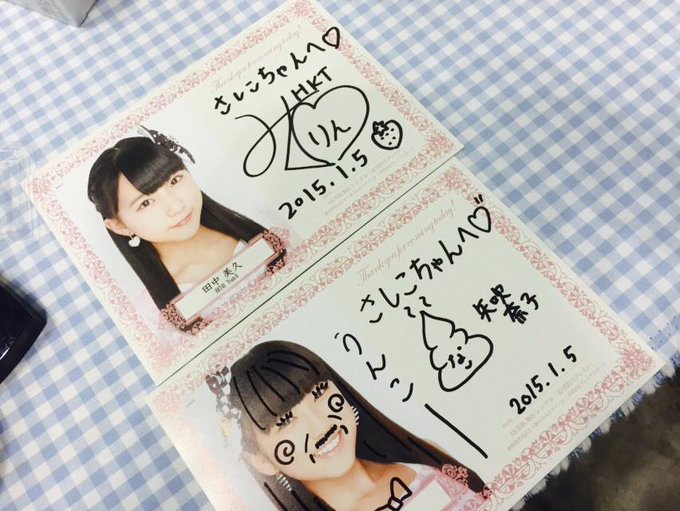 Thank you for coming today!
さしこちゃんへ♡
HKT
りん
2015.1.5
田中 美久
Thank you for coming today!
さしこちゃんへ♡
うんこ
な
矢吹
奈子
2015.1.5